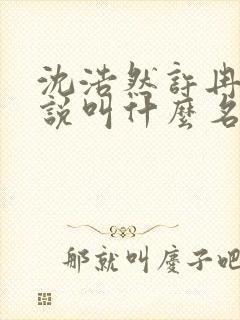 沈浩然許冉
說叫什麼名
那就叫慶子吧